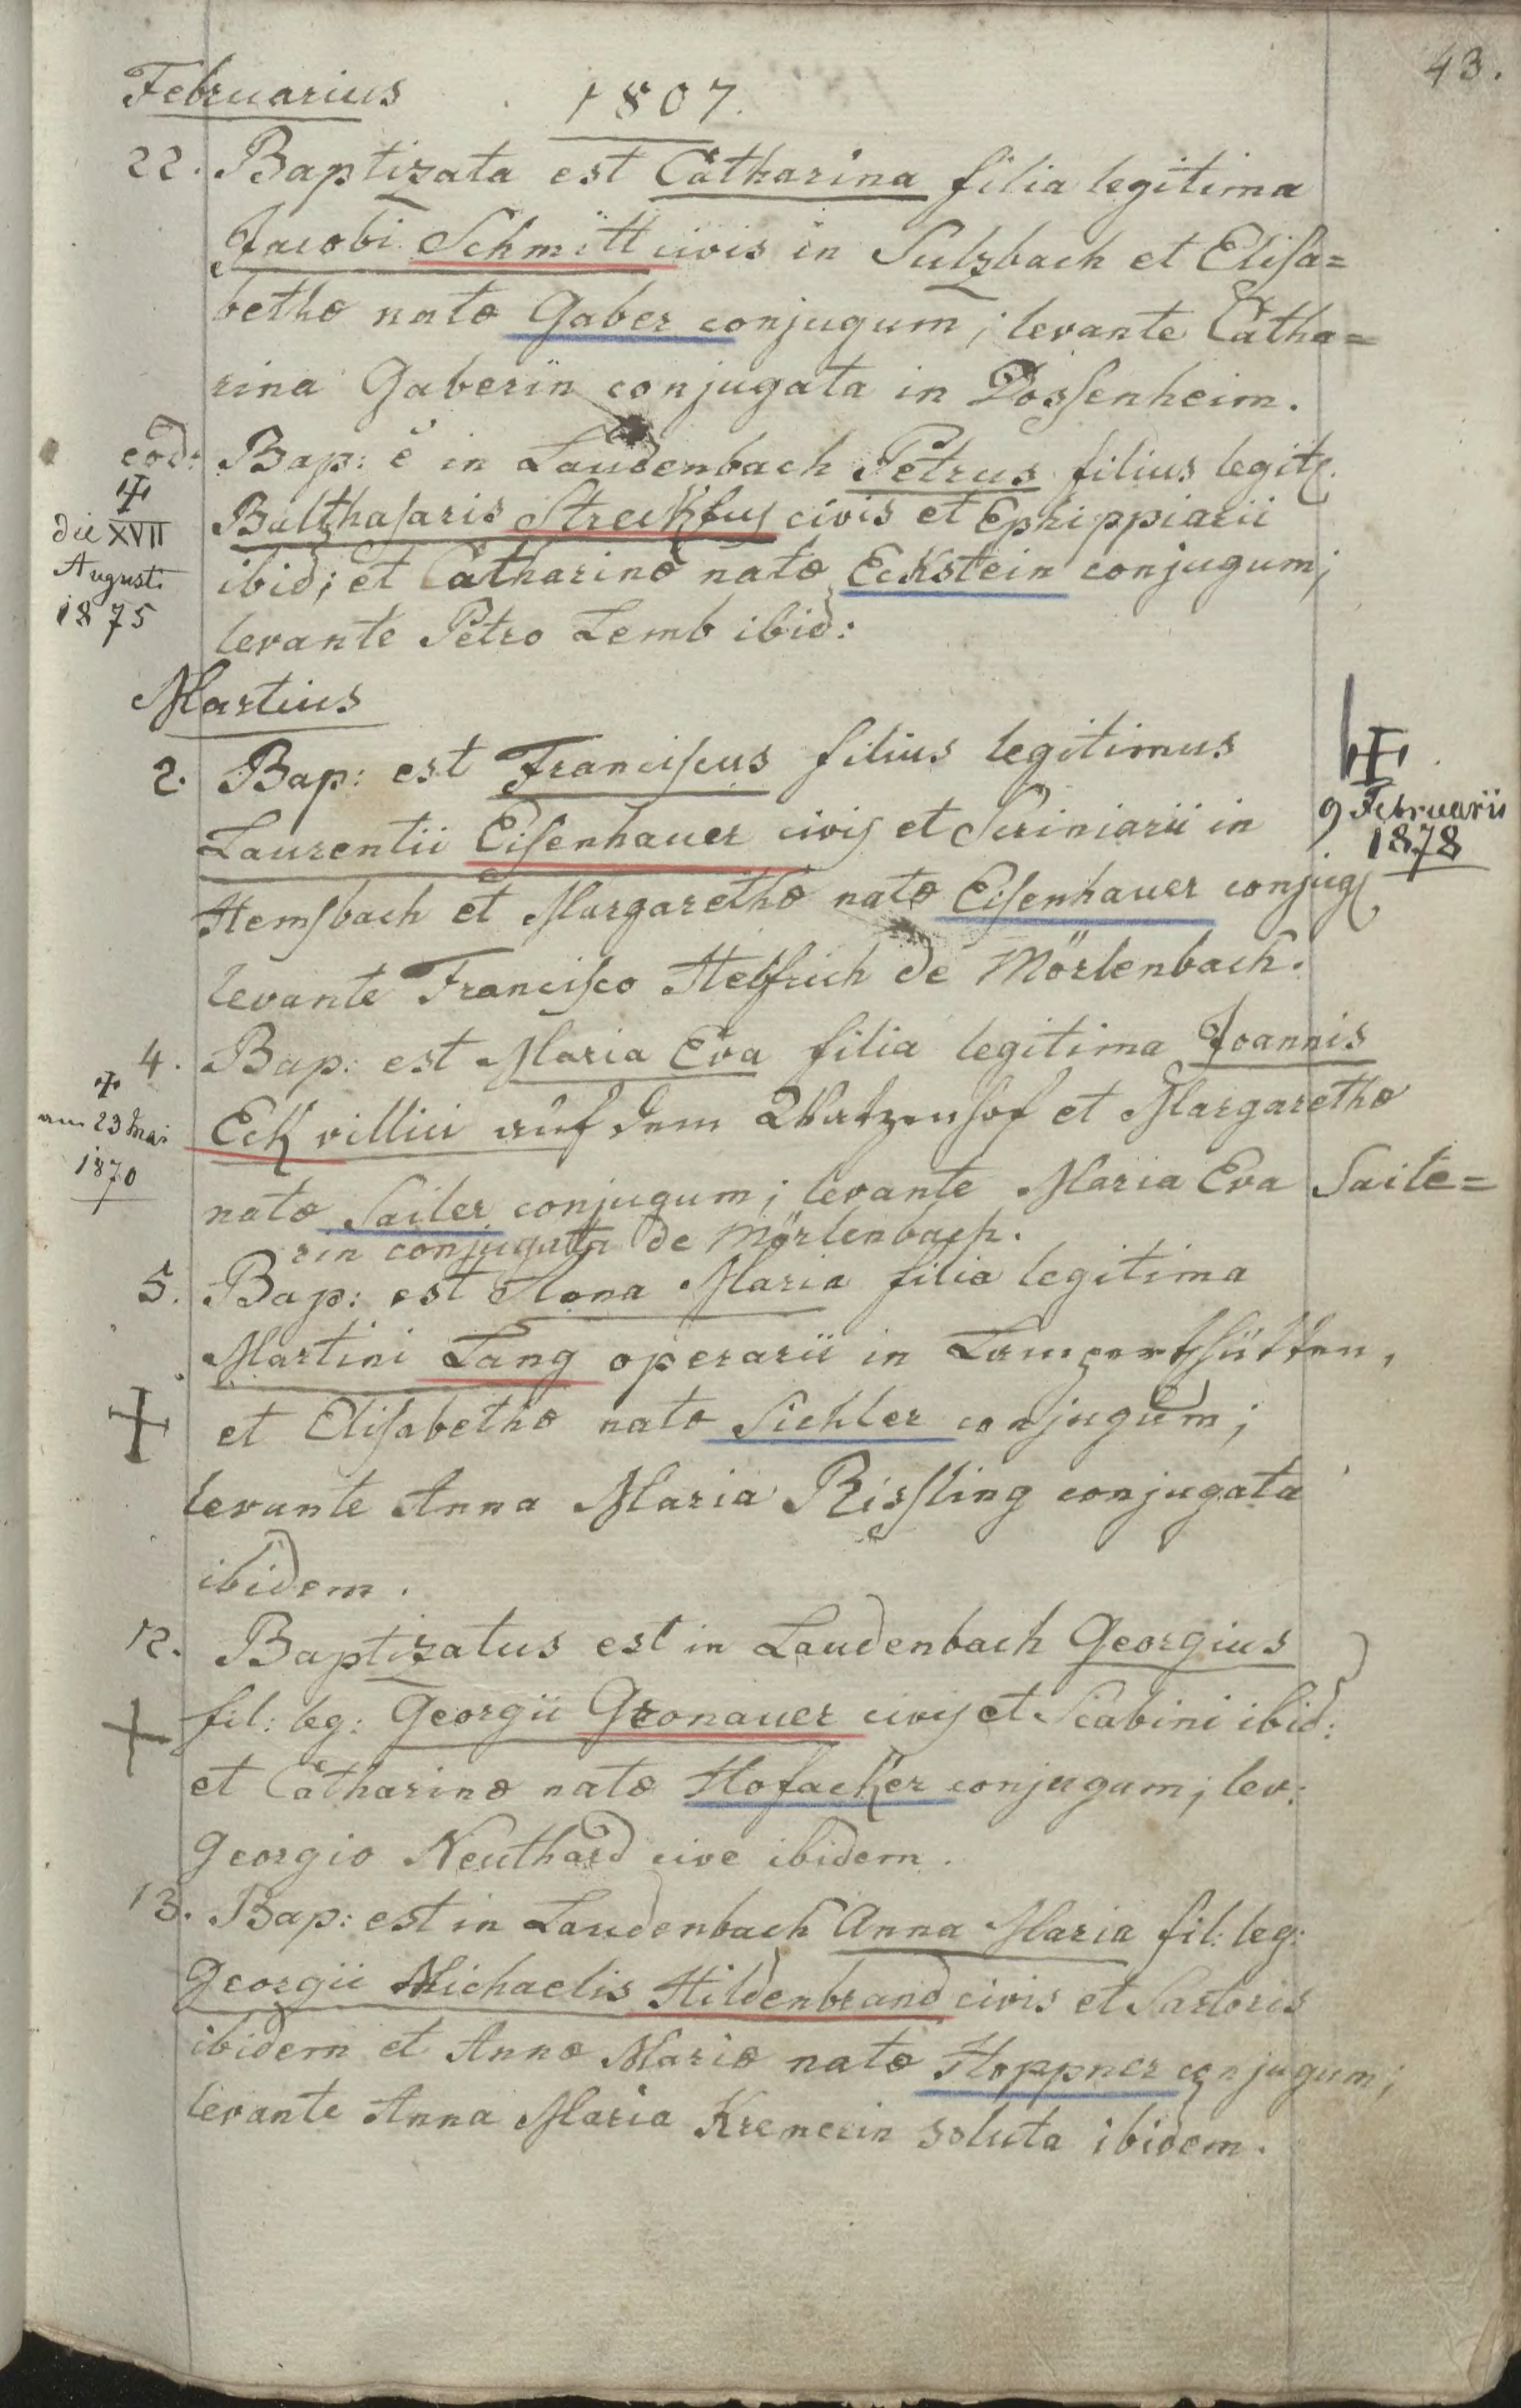 43.
Februarius 1807.
22. Baptizata est Catharina filia legitima
Jacobi Schmitt civis in Sulzbach et Elisa=
bethæ natæ Gaber conjugum; levante Catha=
rina Gaberin conjugata in Dossenheim.
eod: Bap: ē in Laudenbach Petrus filius legit.
Balthasaris Streckfus civis et Ephippiarii
ibid; et Catharinæ natæ Eckstein conjugum;
levante Petro Lemb ibid:
die XVII
Augusti
1875
Martius
2. Bap: est Franciscus filius legitimus
Laurentii Eisenhauer civis et Scriniarii in
Hemsbach et Margarethæ natæ Eisenhauer conjug.
levante Francisco Helfrich de Mörlenbach.
9 Februarii
1878
4. Bap: est Maria Eva filia legitima Joannis
Eck villici auf dem Watzenhof et Margarethæ
natæ Sailer conjugum; levante Maria Eva Saile=
rin conjugata de Mörlenbach.
am 23 Mai
1870
5. Bap: est Anna Maria filia legitima
Martini Lang operarii in
et Elisabethæ natæ Sichler conjugum;
levante Anna Maria Rissling conjugata
ibidem.
12. Baptizatus est in Laudenbach Georgius
fil: leg: Georgii Gronauer civis et Scabini ibid:
et Catharinæ natæ Hofacker conjugum; lev:
Georgio Neuthard cive ibidem.
13. Bap: est in Laudenbach Anna Maria fil: leg:
Georgii Michaelis Hildenbrand civis et Sartoris
ibidem et Annæ Mariæ natæ Hoppner conjugum;
levante Anna Maria Kremerin soluta ibidem.